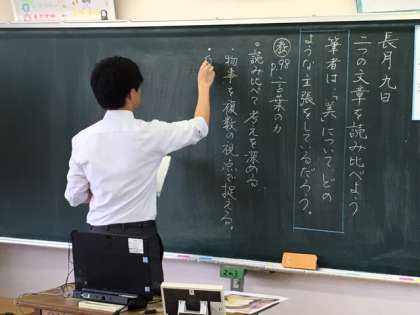 長月九日
二つの文章を読み比べよう
筆者は、「美」についてどの
ような主張をしているだろう。
教 p.98 言葉の力
◦読み比べて考えを深める。
・物事を複数の視点で捉える。
・